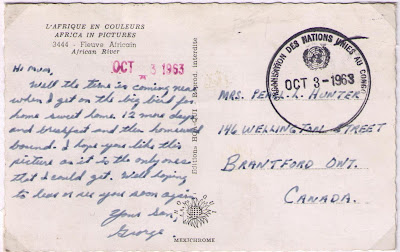 L'AFRIQUE EN COULEURS
AFRICA IN PICTURES
3444 - Fleuve Africain
African River
OCT 3 1963
Hi Mum,
Well the time is coming near
when I get on the big bird for
home sweet home. 12 more days
and breakfast and then homeward
bound. I hope you like this
picture as it is the only one
that I could get. Well hoping
to hear or see you soon again
Your son,
George
Reproduction interdite
MEXICHROME
ORGANISATION DES NATIONS UNIES AU CONGO
OCT 3 - 1963
MRS. PEARL L. HUNTER
146 WELLINGTON STREET
BRANTFORD ONT.
CANADA.